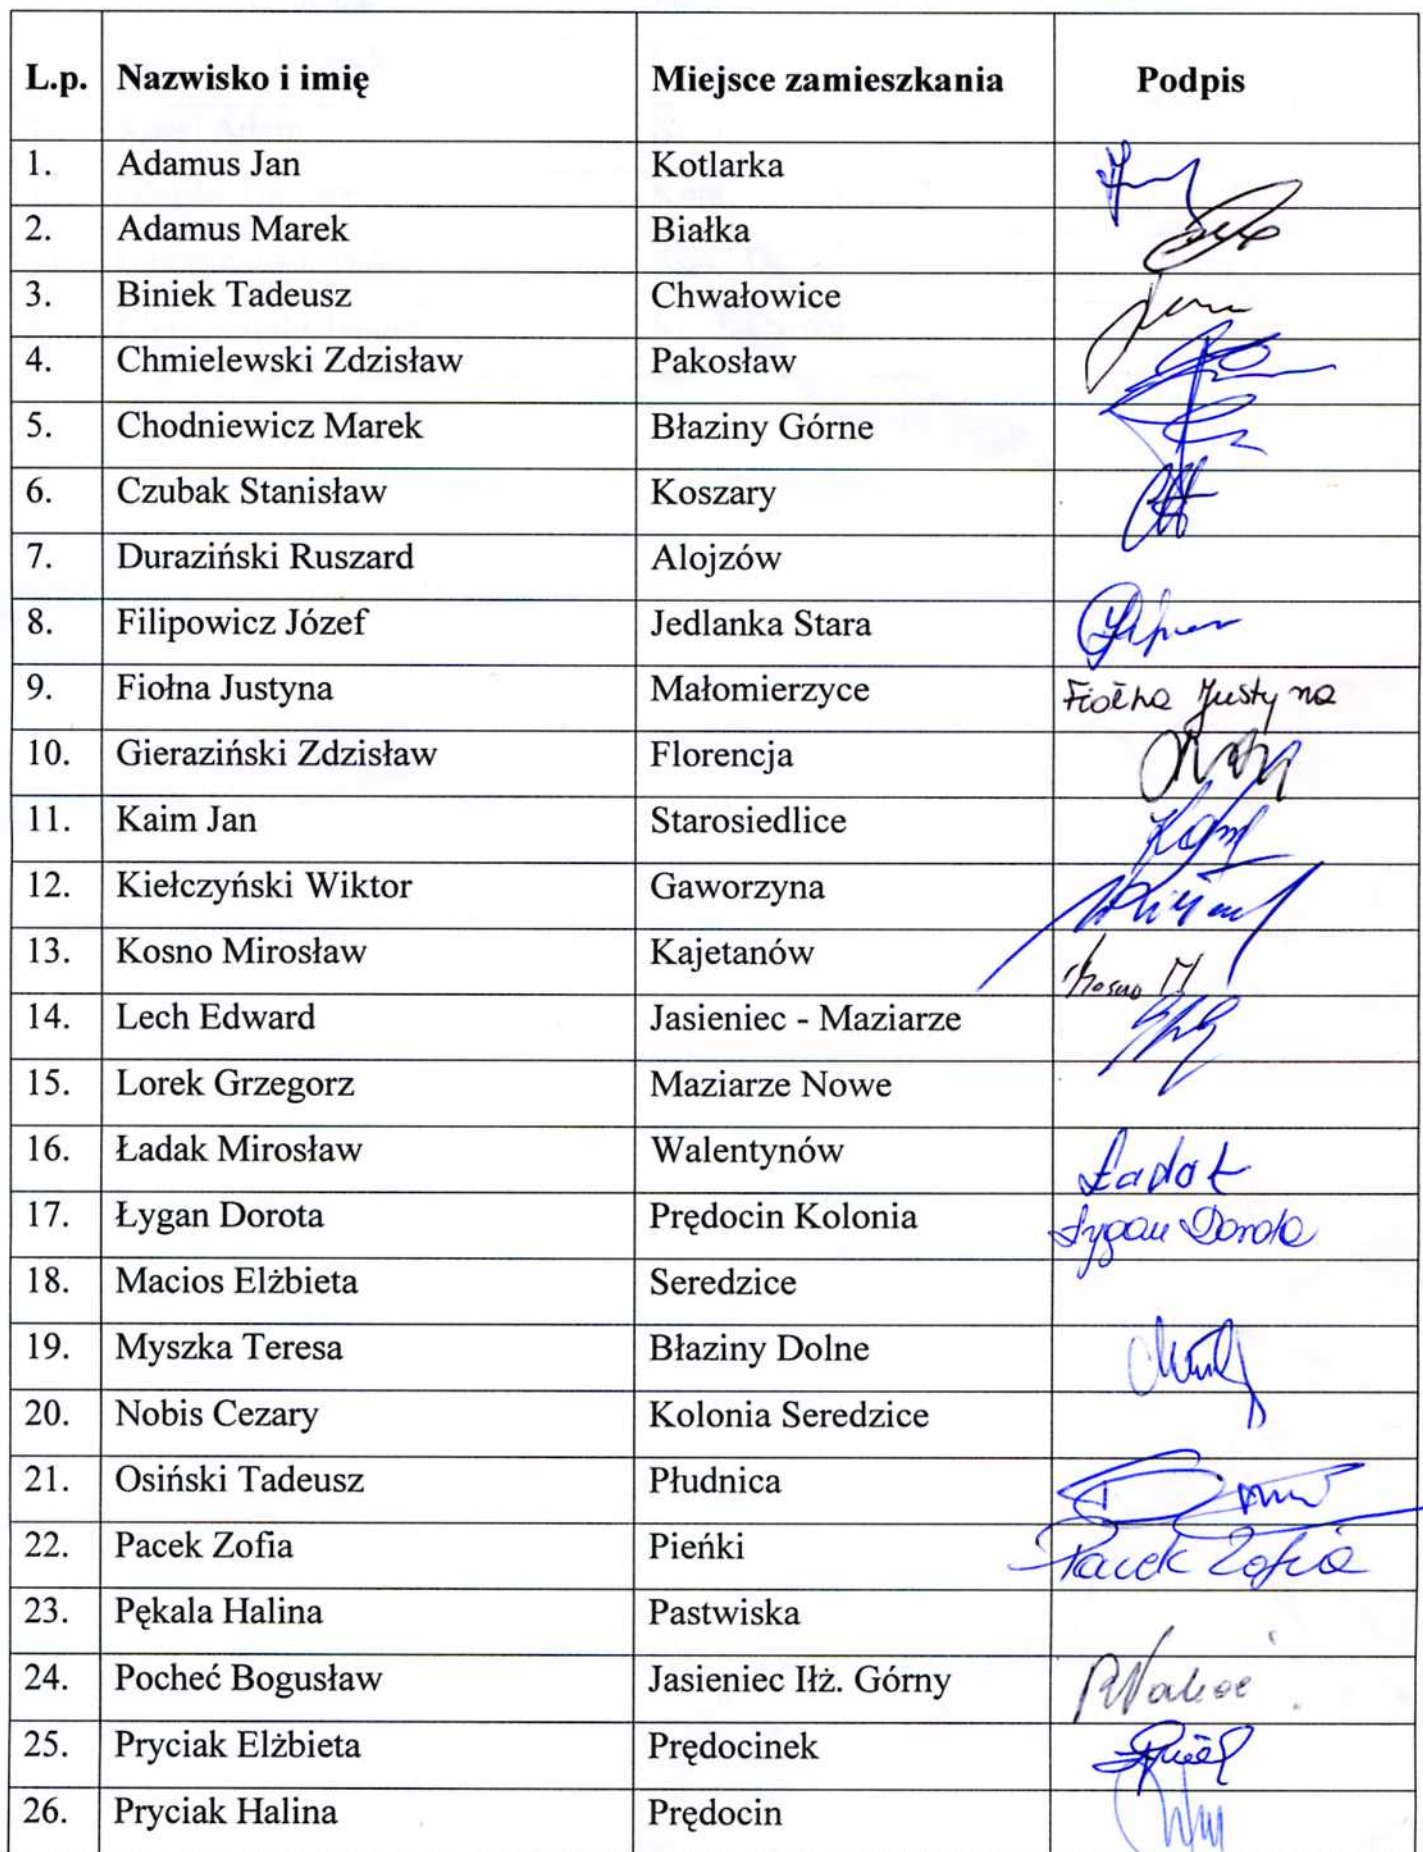 L.p. Nazwisko i imię Miejsce zamieszkania Podpis
1. Adamus Jan Kotlarka
2. Adamus Marek Białka
3. Biniek Tadeusz Chwałowice
4. Chmielewski Zdzisław Pakosław
5. Chodniewicz Marek Błaziny Górne
6. Czubak Stanisław Koszary
7. Duraziński Ruszard Alojzów
8. Filipowicz Józef Jedlanka Stara
9. Fiołna Justyna Małomierzyce Fiołna Justyna
10. Gieraziński Zdzisław Florencja
11. Kaim Jan Starosiedlice
12. Kiełczyński Wiktor Gaworzyna
13. Kosno Mirosław Kajetanów Kosno M
14. Lech Edward Jasieniec - Maziarze
15. Lorek Grzegorz Maziarze Nowe
16. Ładak Mirosław Walentynów Ładak
17. Łygan Dorota Prędocin Kolonia Łygan Dorota
18. Macios Elżbieta Seredzice
19. Myszka Teresa Błaziny Dolne
20. Nobis Cezary Kolonia Seredzice
21. Osiński Tadeusz Płudnica
22. Pacek Zofia Pieńki Pacek Zofia
23. Pękala Halina Pastwiska
24. Pocheć Bogusław Jasieniec Iłż. Górny
25. Pryciak Elżbieta Prędocinek
26. Pryciak Halina Prędocin